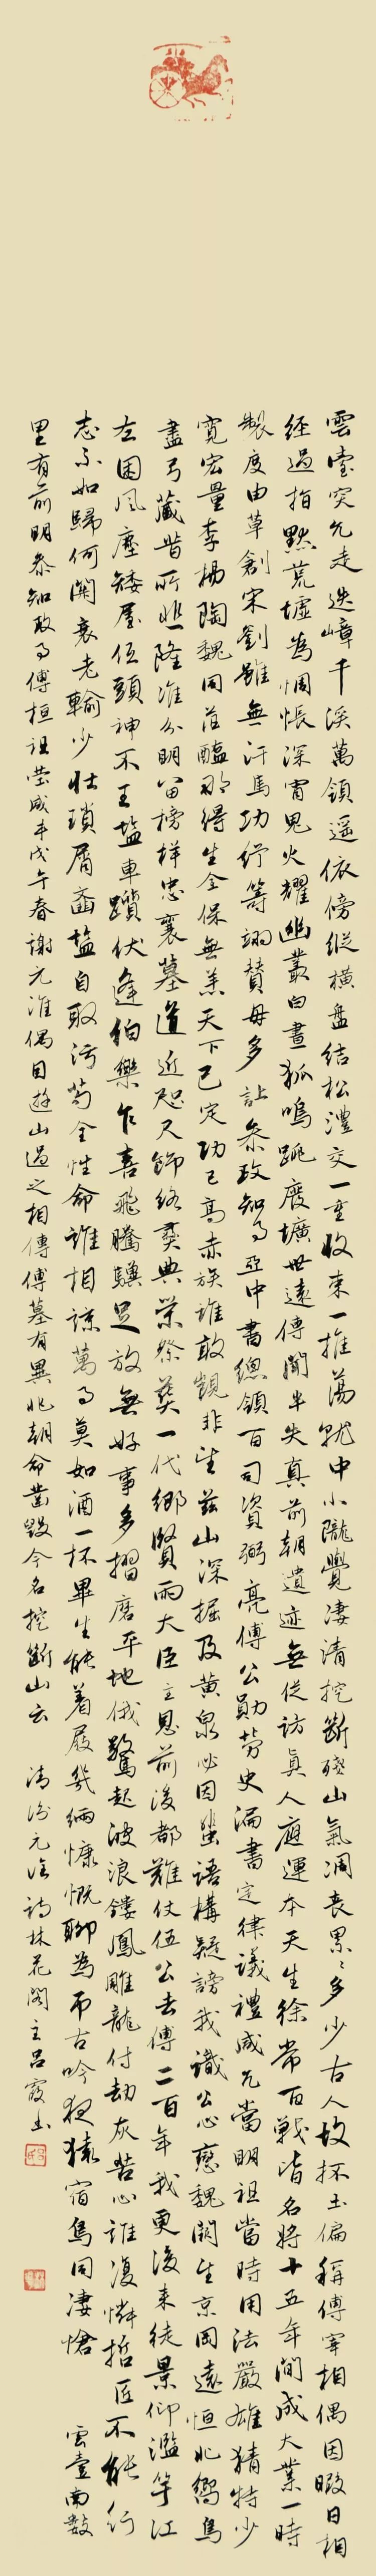 雲宻突兀走迭嶂千溪萬領遥依傍縱橫盤結松澧交一重收束一推蕩就中小隴覺淒清挖斷殘山氣凋喪累〻多少古人墳抔土偏稱傅宰相偶因暇日相
經過指點荒墟為惆悵深宵鬼火耀幽叢白晝狐鳴跳廢壙世遠傳聞半失真前朝遺跡無從訪真人應運本天生徐常百戰皆名將十五年間成大業一時
製度由草創宋劉雖無汗馬功紆籌翊贊毋多讓參政知事亞中書總領百司資弼亮傅公勛勞史漏書定律議禮咸允當明祖當時用法嚴雄猜特少
寬宏量李楊陶魏同菹醢那得生全保無恙天下已定功已高赤族誰敢覬非望茲山深掘及黄泉必因蜚語構疑謗我識公心戀魏闕生京岡遠恒北嚮鳥
盡弓藏昔所悲隆准分明留榜樣忠襄墓道近咫尺飾終異典榮祭葬一代鄉賢兩大臣主恩前後都難仗伍公去傅二百年我更後來徒景仰濫竽江
左困風塵矮屋低頭神不王鹽車躓伏逢伯樂乍喜飛騰驥足放無好事多摺磨平地俄驚起波浪鏤鳳雕龍付劫灰苦心誰復憐哲匠不能行
志不如歸何閑衰老輸少壯瑣屑齑鹽自取污苟全性命誰相諒萬事莫如酒一杯畢生能着屐幾緉慷慨聊為吊古吟夜猿宿鳥同淒愴 雲臺南數
里有前明參知政事傅桓祖塋咸丰戊午春謝元淮偶目遊山過之相傳傅墓有異兆朝命凿毀今名挖斷山云 清謝元淮詩林花閣主吕霞書